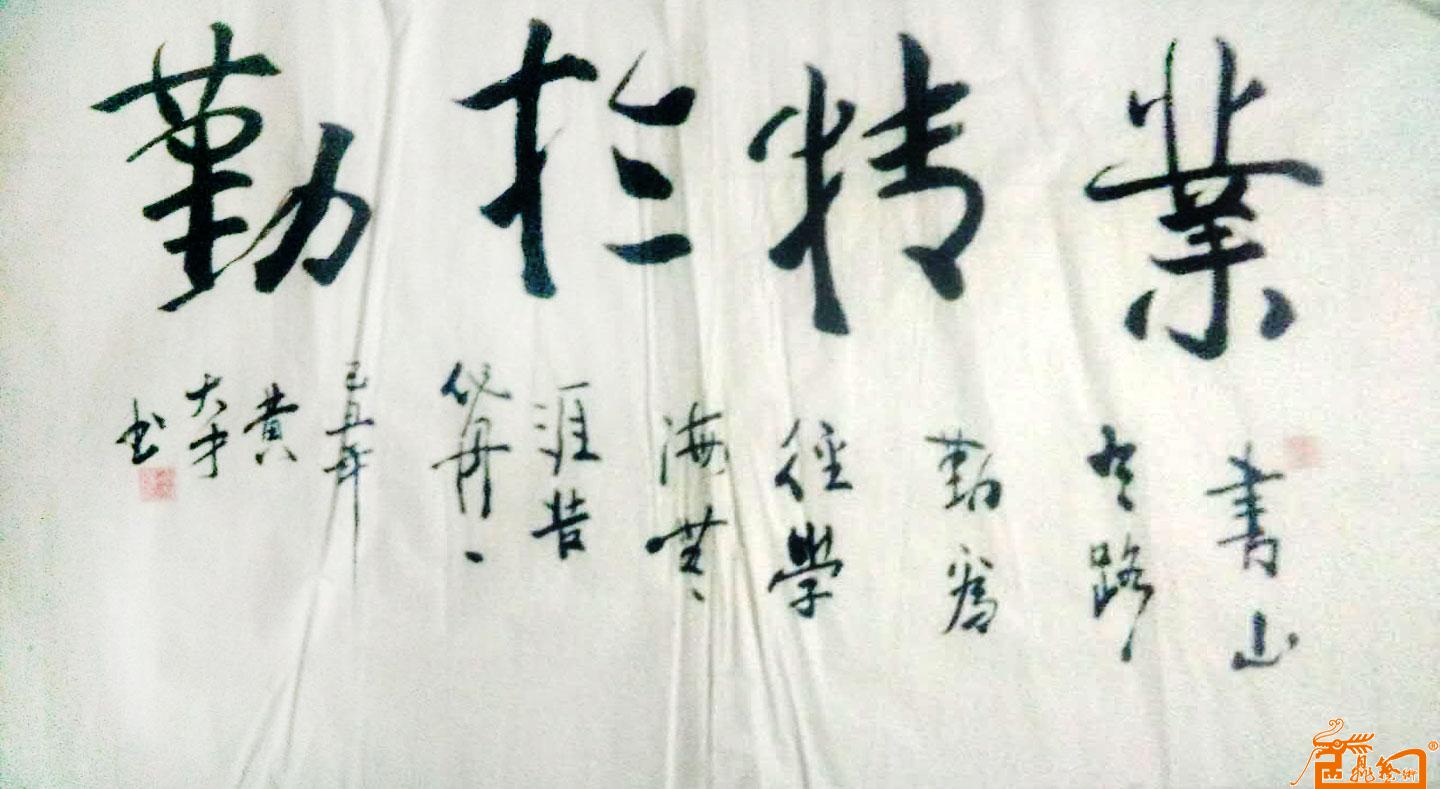 業精於勤
書山
有路
勤為
徑學
海無
涯苦
作舟
己丑年
黄
大才
书